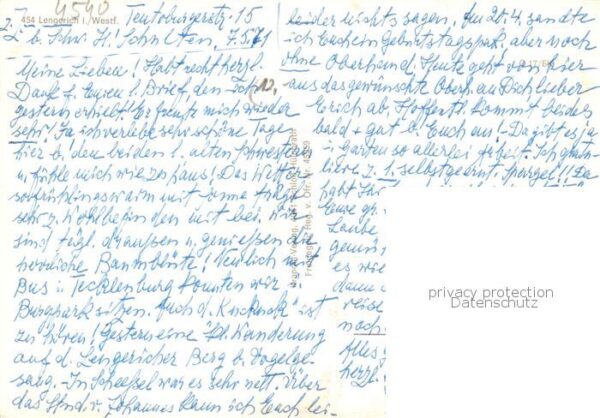 4540
454 Lengerich i. Westf.
Teutoburgerstr. 15
z. Zt. b. Schw. H. Schulten, 7.5.71
Meine Lieben! Habt recht herzl.
Dank f. Euren l. Brief, den ich
gestern erhielt! Er freute mich wieder
sehr! Ja ich verlebe sehr schöne Tage
hier b. den beiden l. alten Schwestern
u. fühle mich wie zu Haus! Das Wetter
so frühlingswarm mit
sehr z. Wohlbefinden mit bei. Wir
sind tägl. draussen u. geniessen die
herrliche Baumblüte! Neulich mit
Bus i. Tecklenburg konnten wir i.
Burgpark sitzen. Auch d. Kuckuck ist
zu hören! Gestern eine Wanderung
auf d. Lengericher Berg b. Vogelge-
sang. - In Scheeßel war es sehr nett. Über
das v. Johannes kann ich Euch lei-
der nichts sagen. Am 20.4. sandte
ich Euch ein Geburtstagspäk. aber noch
ohne Oberhemd. Heute geht von hier
aus das gewünschte Oberh. an Dich lieber
Erich ab. Hoffentl. kommt beides
bald + gut b. Euch an! Da gibt es ja
i. Garten so allerlei Arbeit. Ich
z. 1. selbstgeernt. Spargel!! Da
habt Ihr
Eure gr.
Laube
gemüt
es wie
dann
reise
noch
Alles
herzl.
privacy protection
Datenschutz